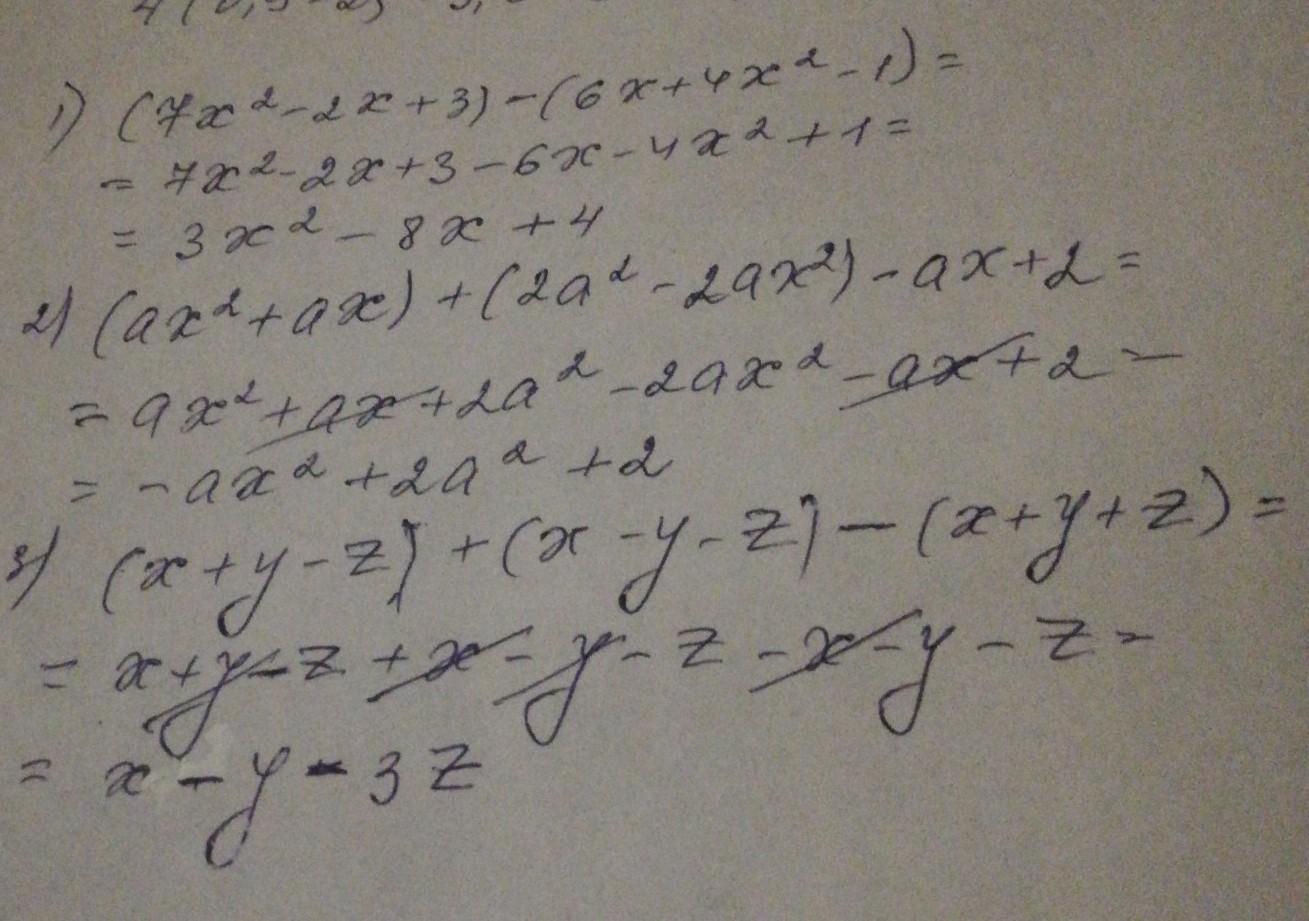 1) (7x² - 2x + 3) - (6x + 4x² - 1) =
= 7x² - 2x + 3 - 6x - 4x² + 1 =
= 3x² - 8x + 4
2) (ax² + ax) + (2a² - 2ax²) - ax + 2 =
= ax² + ax + 2a² - 2ax² - ax + 2 =
= - ax² + 2a² + 2
3) (x + y - z) + (x - y - z) - (x + y + z) =
= x + y - z + x - y - z - x - y - z =
= x - y - 3z